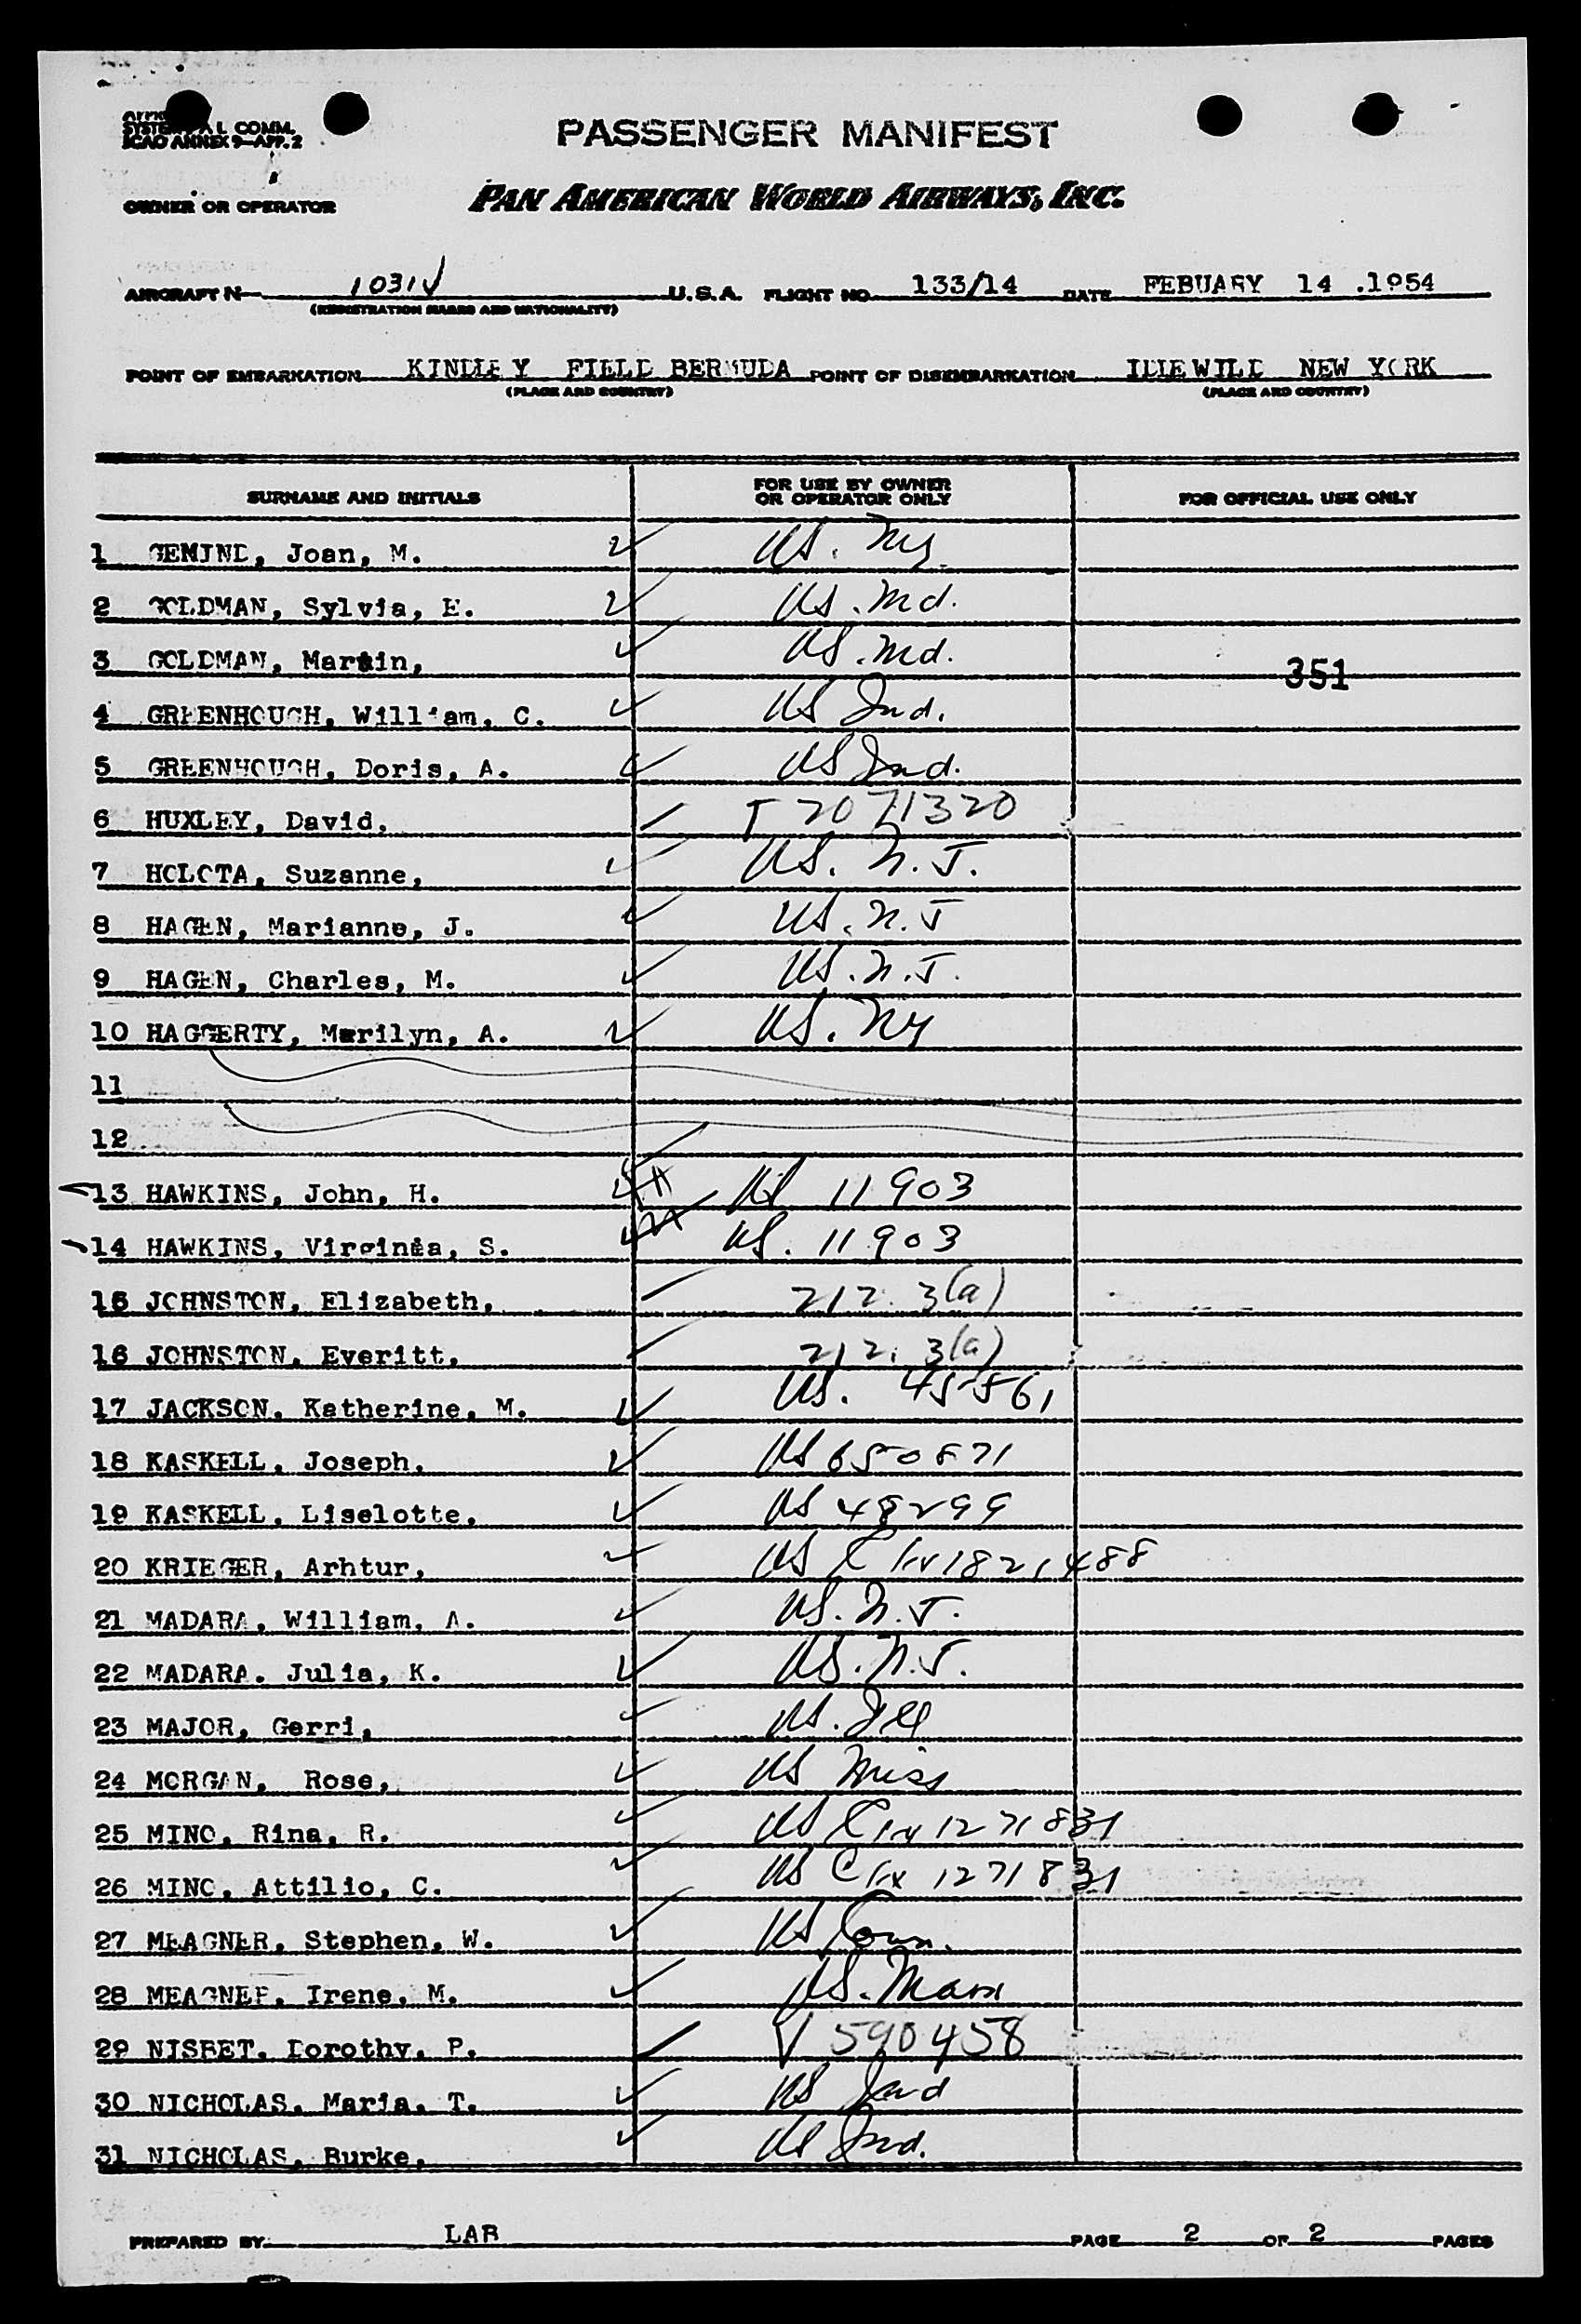 SYSTEM
L COMM.
ICAO ANNEX 9—APP. 2
PASSENGER MANIFEST
OWNER OR OPERATOR PAN AMERICAN WORLD AIRWAYS, INC.
AIRCRAFT N 1031V U.S.A. FLIGHT NO. 133/14 DATE FEBUARY 14 .1954
(REGISTRATION MARKS AND NATIONALITY)
POINT OF EMBARKATION KINDLEY FIELD BERMUDA POINT OF DISEMBARKATION IDLEWILD NEW YORK
(PLACE AND COUNTRY) (PLACE AND COUNTRY)
SURNAME AND INITIALS FOR USE BY OWNER OR OPERATOR ONLY FOR OFFICIAL USE ONLY
1 GEMIND, Joan, M. US. NY.
2 GOLDMAN, Sylvia, E. US. Md.
3 GOLDMAN, Martin, US. Md.
351
4 GREENHOUGH, William, C. US Ind.
5 GREENHOUGH, Doris, A. US Ind.
6 HUXLEY, David, T 2071320
7 HOLOTA, Suzanne, US. N.J.
8 HAGEN, Marianne, J. US. N.J
9 HAGEN, Charles, M. US. N.J.
10 HAGGERTY, Marilyn, A. US. NY
11
12
13 HAWKINS, John, H. US 11903
14 HAWKINS, Virginia, S. US. 11903
15 JOHNSTON, Elizabeth, 212. 3(a)
16 JOHNSTON, Everitt, 212. 3(a)
17 JACKSON, Katherine, M. US. 455561
18 KASKELL, Joseph, US 650871
19 KASKELL, Liselotte, US 48299
20 KRIEGER, Arhtur, US 1821488
21 MADARA, William, A. US. N.J.
22 MADARA. Julia, K. US. N.J.
23 MAJOR, Gerri, US. Ill
24 MORGAN, Rose, US Miss
25 MINO, Rina, R. US 1271831
26 MINO, Attilio, C. US 1271831
27 MEAGNER, Stephen, W. US Conn.
28 MEAGNER, Irene, M. US. Mass
29 NISBET. Dorothy. P. V 590458
30 NICHOLAS. Maria. T. US Ind
31 NICHOLAS, Burke, US Ind.
PREPARED BY LAR PAGE 2 OF 2 PAGES